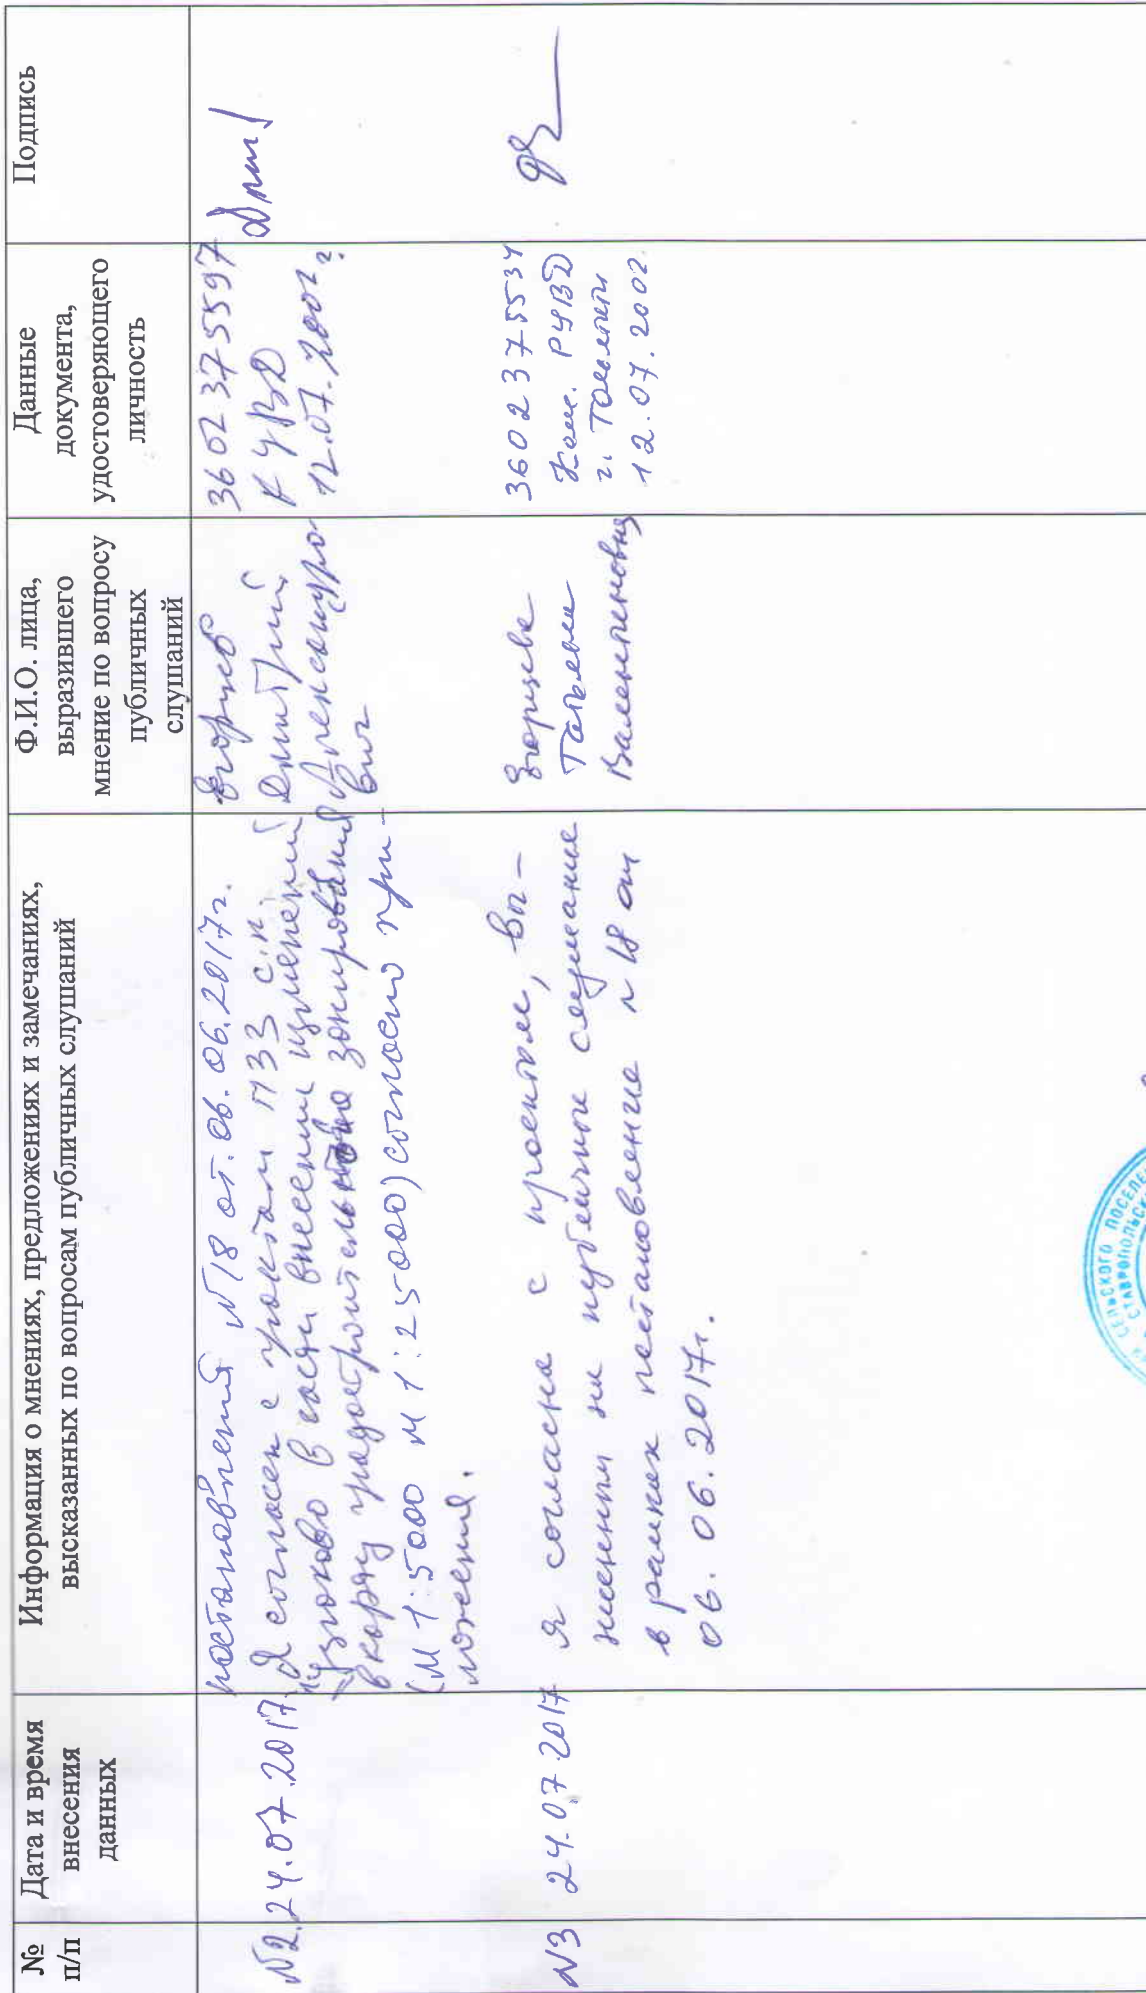 № п/п
Дата и время
внесения
данных
Информация о мнениях, предложениях и замечаниях,
высказанных по вопросам публичных слушаний
Ф.И.О. лица,
выразившего
мнение по вопросу
публичных
слушаний
Данные
документа,
удостоверяющего
личность
Подпись
постановления №18 от 06.06.2017г.
№2. 24.07.2017
Я согласен с проектом ПЗЗ с.п.
в части внесения изменений
в карту градостроительного зонирования
(М 1:5000 М 1:25000) согласно при-
ложения.
Егорцев
Дмитрий
Александро
вич
3602 375597
КУВД
12.07.2002г
№3 24.07.2017
Я согласна с проектом, вы-
несенным на публичное слушание
в рамках постановление №18 от
06.06.2017г.
Егорцева
Татьяна
Валентиновна
3602375534
Ком. РУВД
г. Тольятти
12.07.2002.
СЕЛЬСКОГО ПОСЕЛЕН
СТАВРОПОЛЬСК